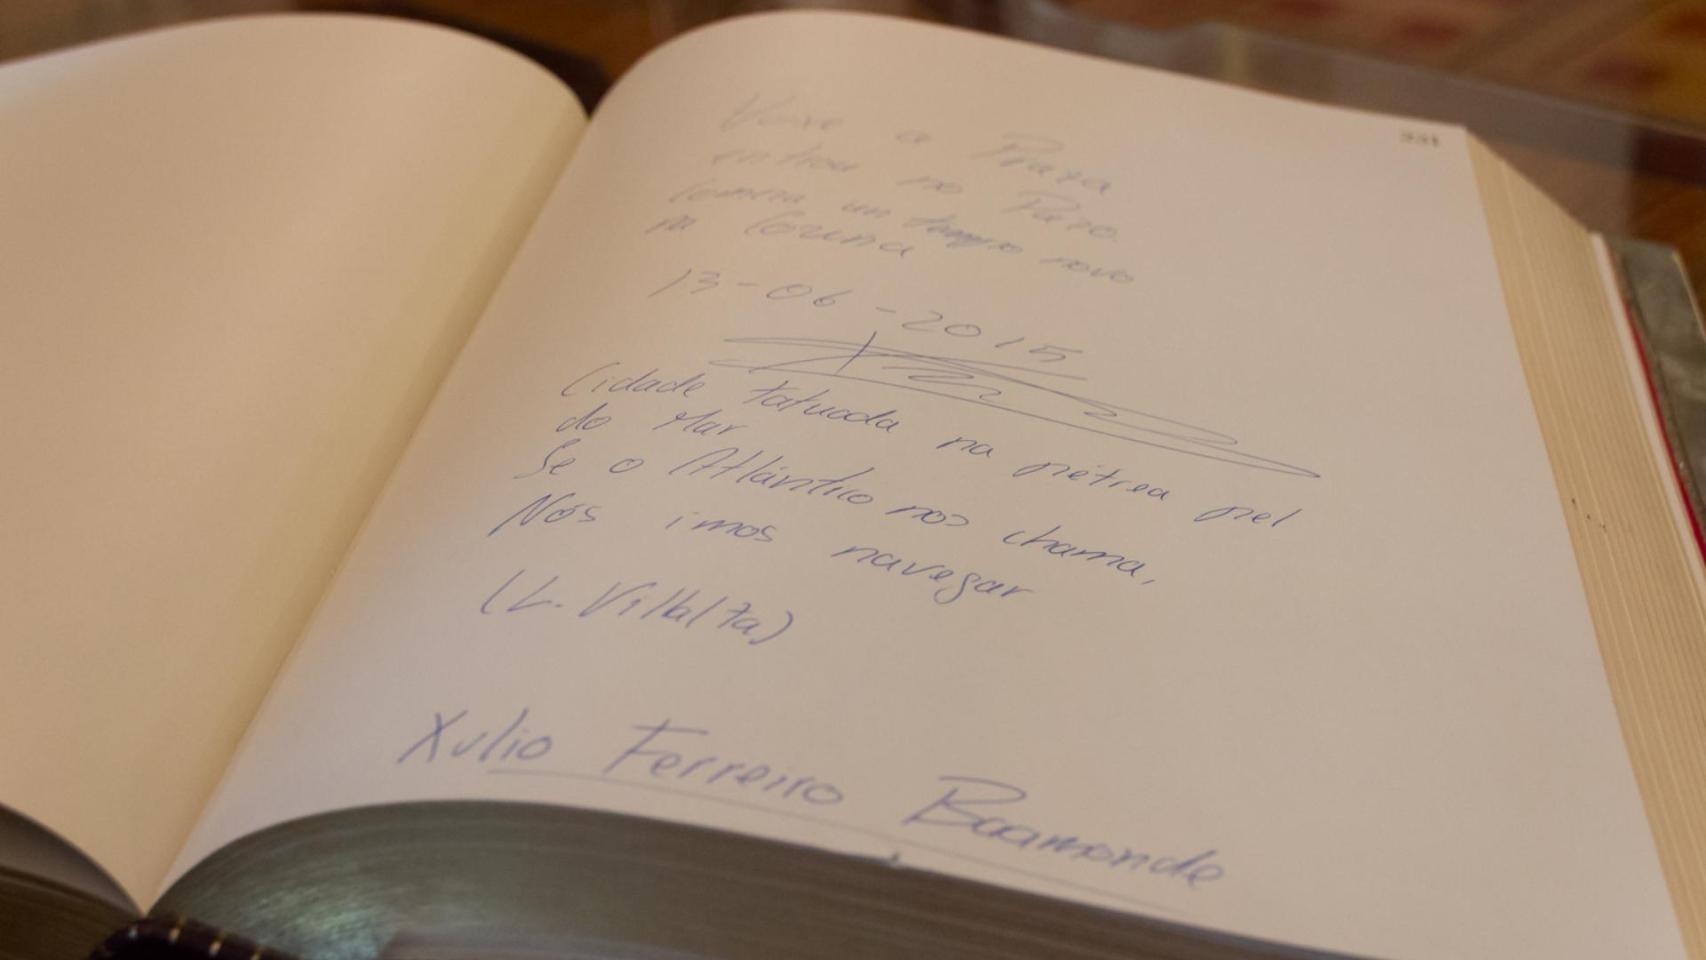 331
a Praza
entrou no Pazo.
Comeza un tempo novo
na Coruña
13-06-2015
Cidade tatuada na pétrea pel
do Mar
Se o Atlántico nos chama,
Nós imos navegar
(L. Villalta)
Xulio Ferreiro Baamonde